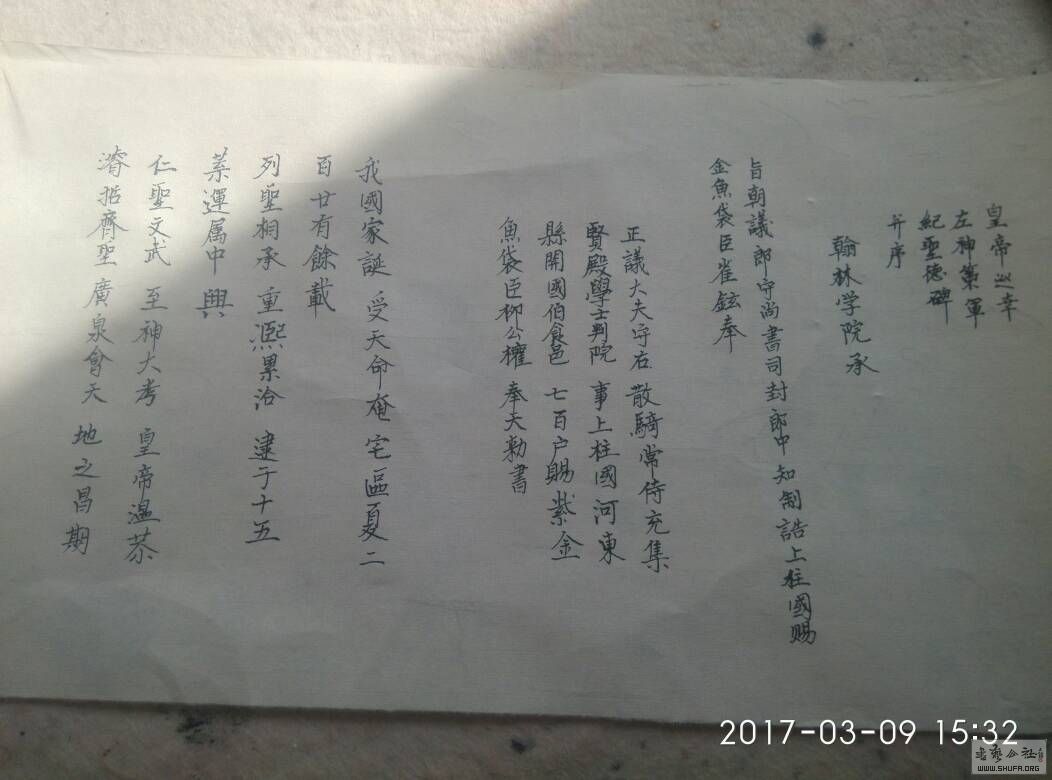 皇帝巡幸
左神策軍
紀聖德碑
并序
翰林学院承
旨朝議郎守尚書司封郎中知制誥上柱國赐
金魚袋臣崔鉉奉
正議大夫守右散騎常侍充集
賢殿學士判院事上柱國河東
縣開國伯食邑七百户赐紫金
魚袋臣柳公權奉大勅書
我國家誕受天命奄宅區夏二
百廿有餘載
列聖相承重熙累洽逮于十五
葉運属中興
仁聖文武至神大孝皇帝温恭
濬哲齊聖廣泉會天地之昌期
2017-03-09 15:32
WWW.SHUFA.ORG